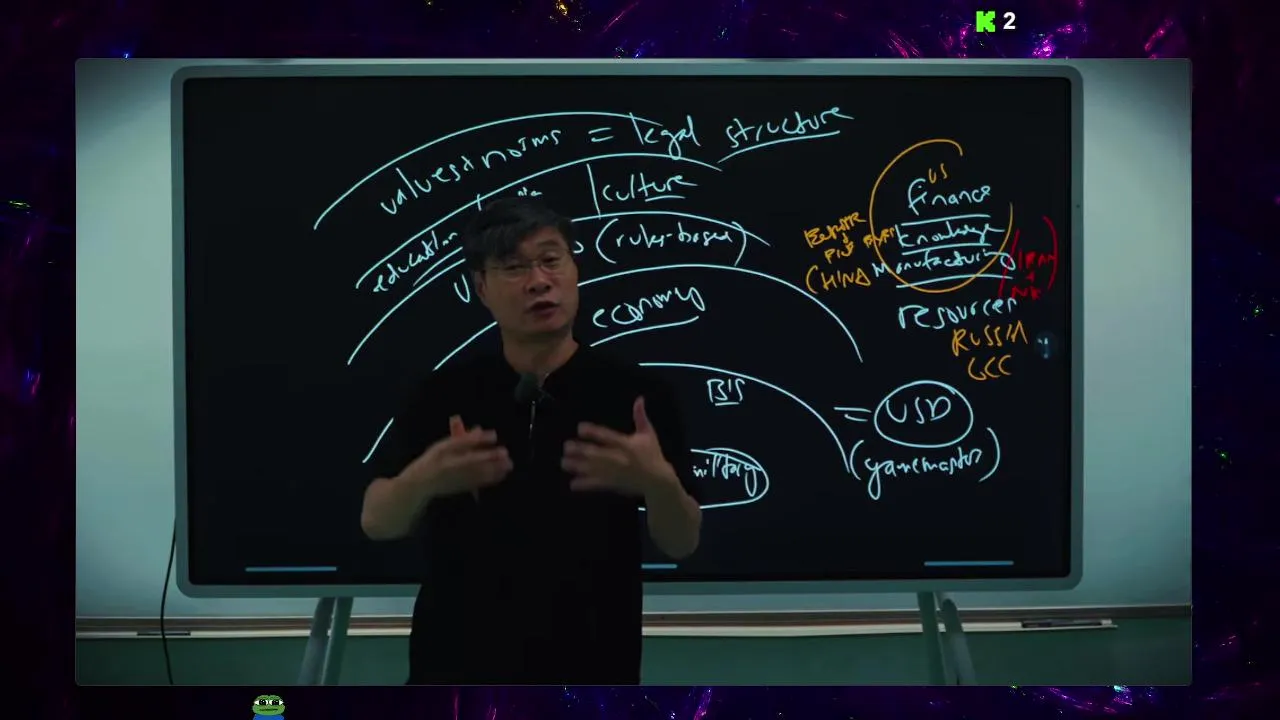 K 2
values + norms = legal structure
education
culture
(rules-based)
economy
BIS
military
US
finance
knowledge
CHINA
Manufacturing
resources
RUSSIA
GCC
= USD
(gamemaster)